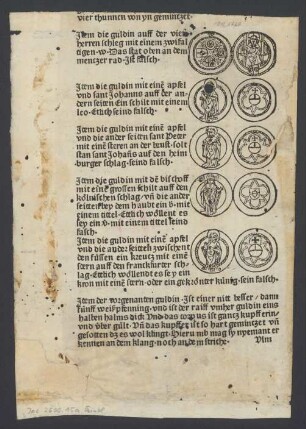 vier thunnen von yn gemüntzet.
Jtem die guldin auff der vier
herren schleg mit einem zwifal
tigen w. Das stat oben an dem
mentzer rad. Jst falsch.
Jtem die guldin mit einē apfel
vnd sant Johanns auff der an
dern seiten Ein schilt mit einem
leo. Etlich seind falsch.
Jtem die guldin mit einē apfel
vnd die ander seiten sant Peter
mit eine steren an der brust. solt
stan sant Johañs auff den heim
burger schlag. seind falsch.
Jtem die guldin mit dē bischoff
mit einē grossen schilt auff den
kölnischen schlag/ vñ die ander
seiten bey dem haubt ein v. mit
einem tittel. Etlich wöllent es
sey ein v. mit einem tittel seind
falsch.
Jtem die guldin mit eine apfel
vnd die ander seiten zwischent
den füssen ein kreutz mit eine
stern auff den franckfurter sch
lag. Etlich wöllent es sey ein
kron mit eine stern. oder ein gekrönter künig. sein falsch.
Jtem der vorgenanten guldin Jst einer nit besser/ dann
fünff weißpfenning. vnd ist der raiff vmher guldin eins
halben halms dick. Vnd das corpus ist gantz kupfferin/
vnd über gült. Vñ das kupffer ist so hart gemüntzet vñ
gesotten dz es wol klingt. Hierumb mag sy nyemant er
kennen an dem klang. noch an dem striche.
Vlm